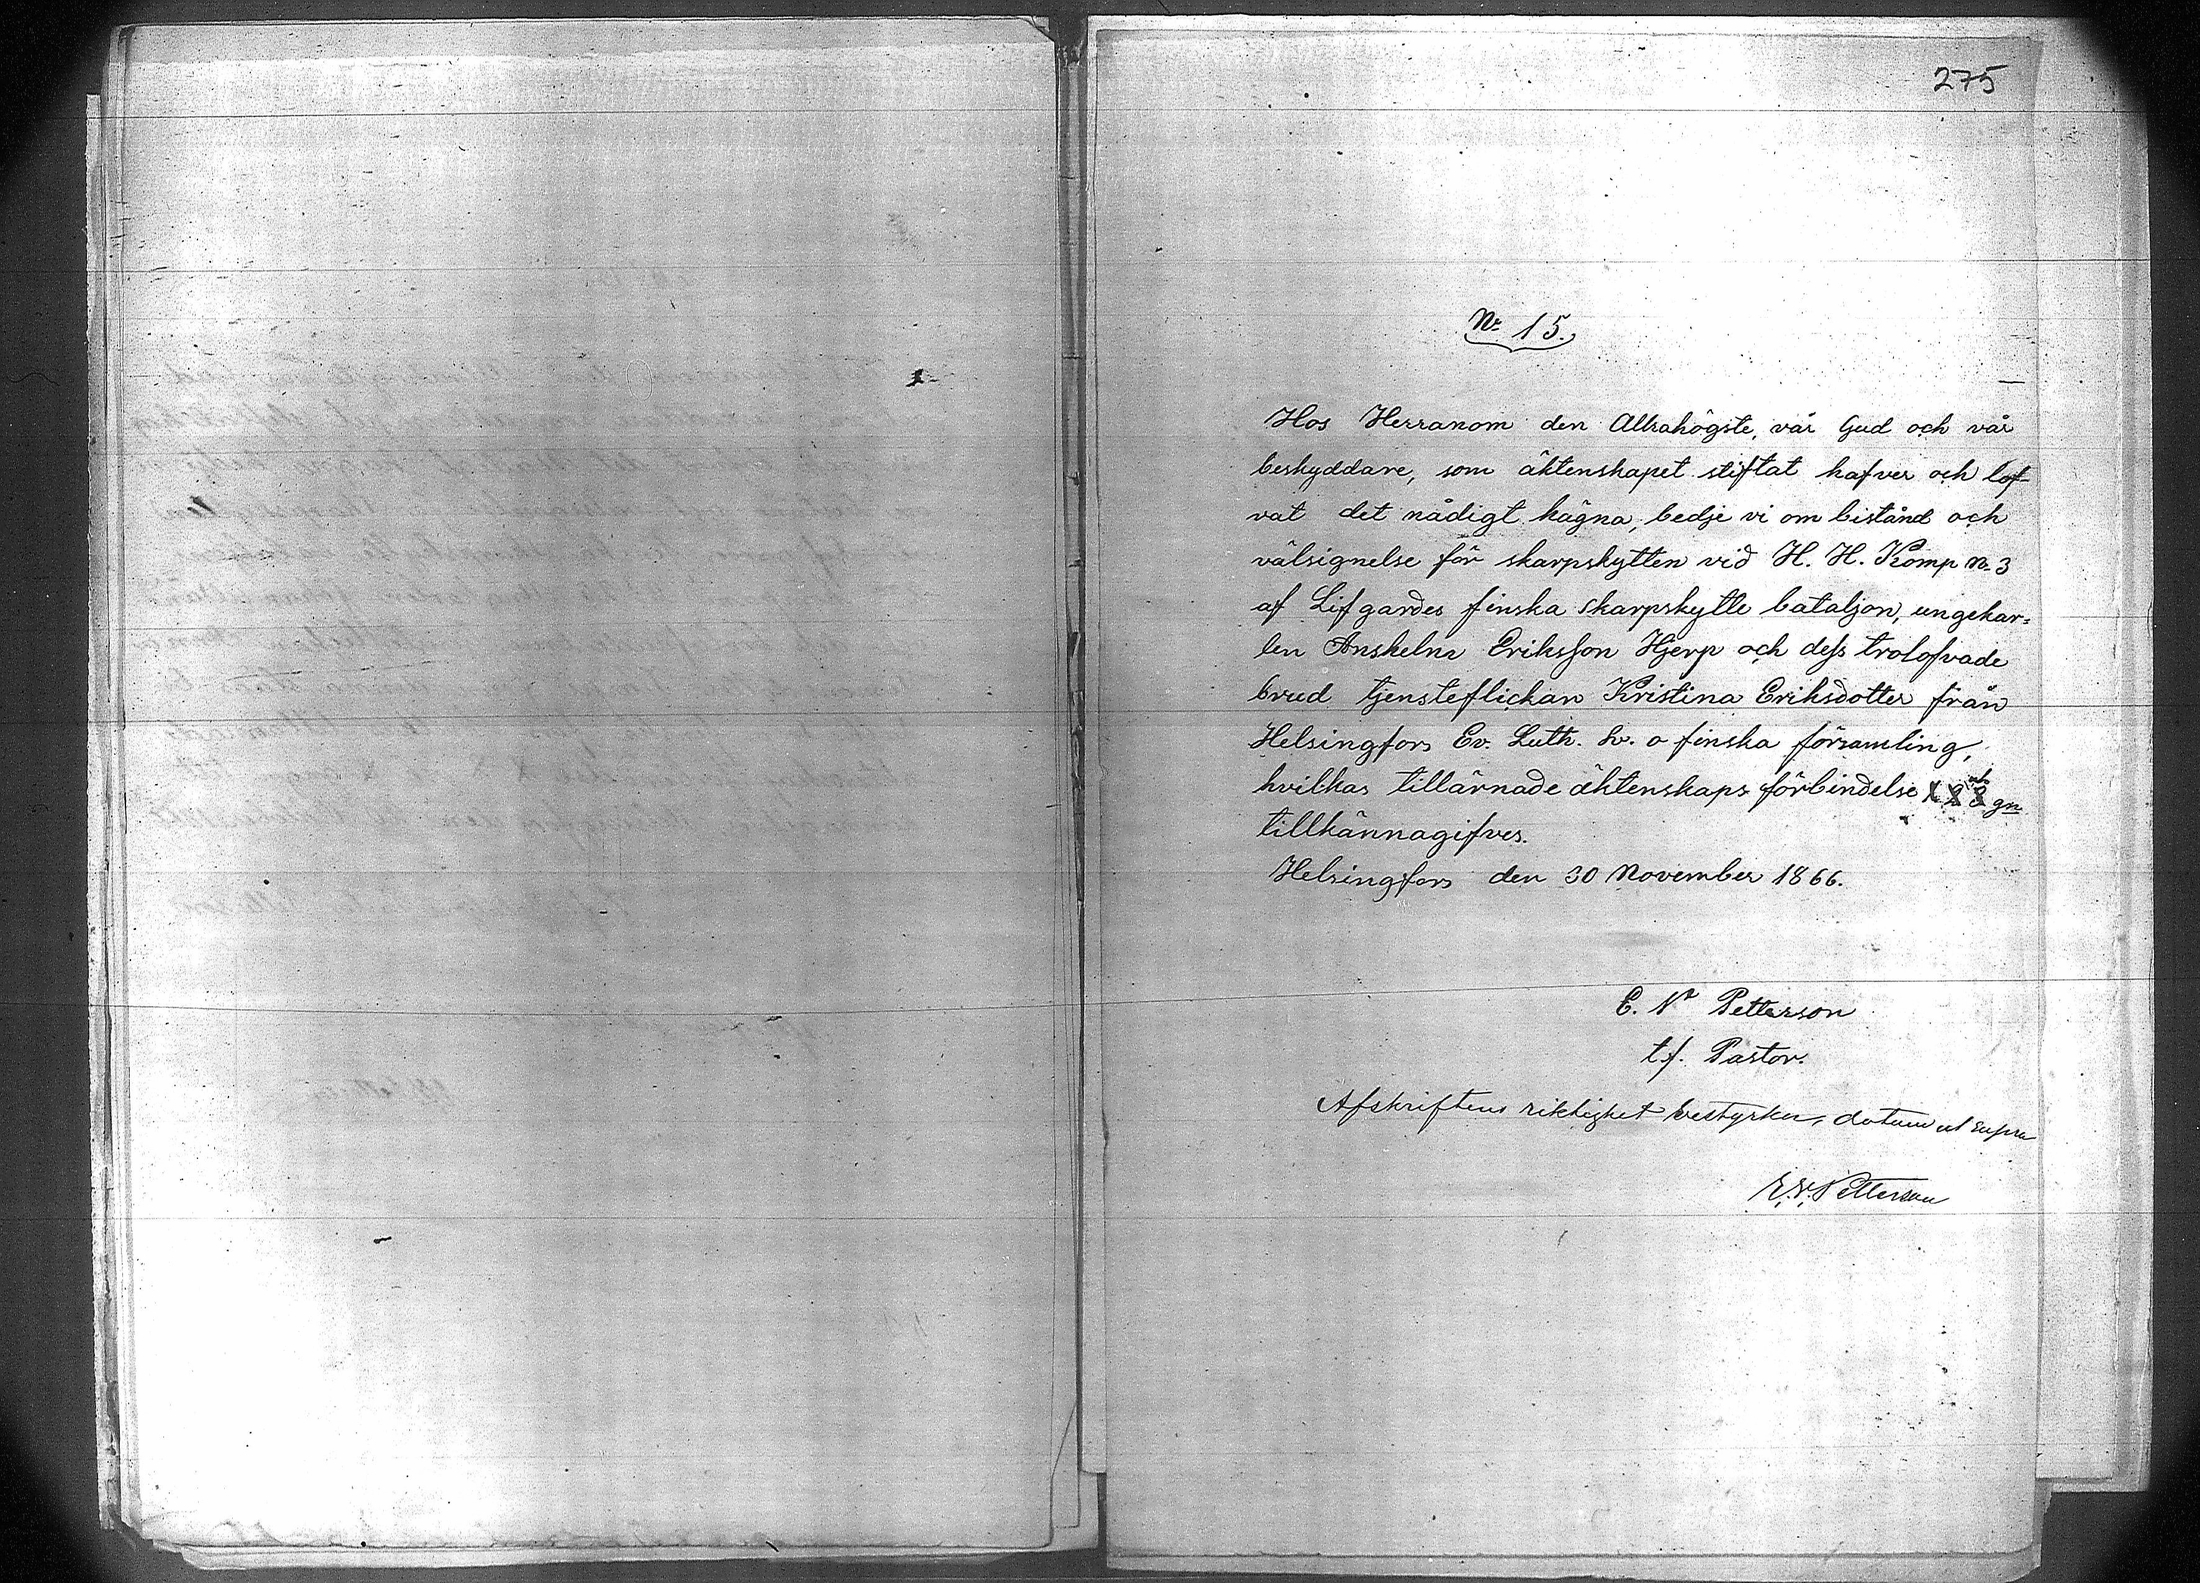 275
No 15.
Hos Herranom den Allrahögste, vår Gud och vår
beskyddare, som äktenskapet stiftat hafver och lof-
vat det nådigt hägna, bedje vi om bistånd och
välsignelse för skarpskytten vid H. H. Komp No 3
af Lifgardes finska skarpskytte bataljon, ungekar=
len Anshelm Eriksson Hjerp och dess trolofvade
brud tjensteflickan Kristina Eriksdotter från
Helsingfors Ev. Luth. sv. o finska församling,
hvilkas tillärnade äktenskaps förbindelse gn
tillkännagifves.
Helsingfors den 30 November 1866.
E. V. Petterson
t.f. Pastor.
Afskriftens riktighet bestyrker, datum ut supra
E. V. Petterson